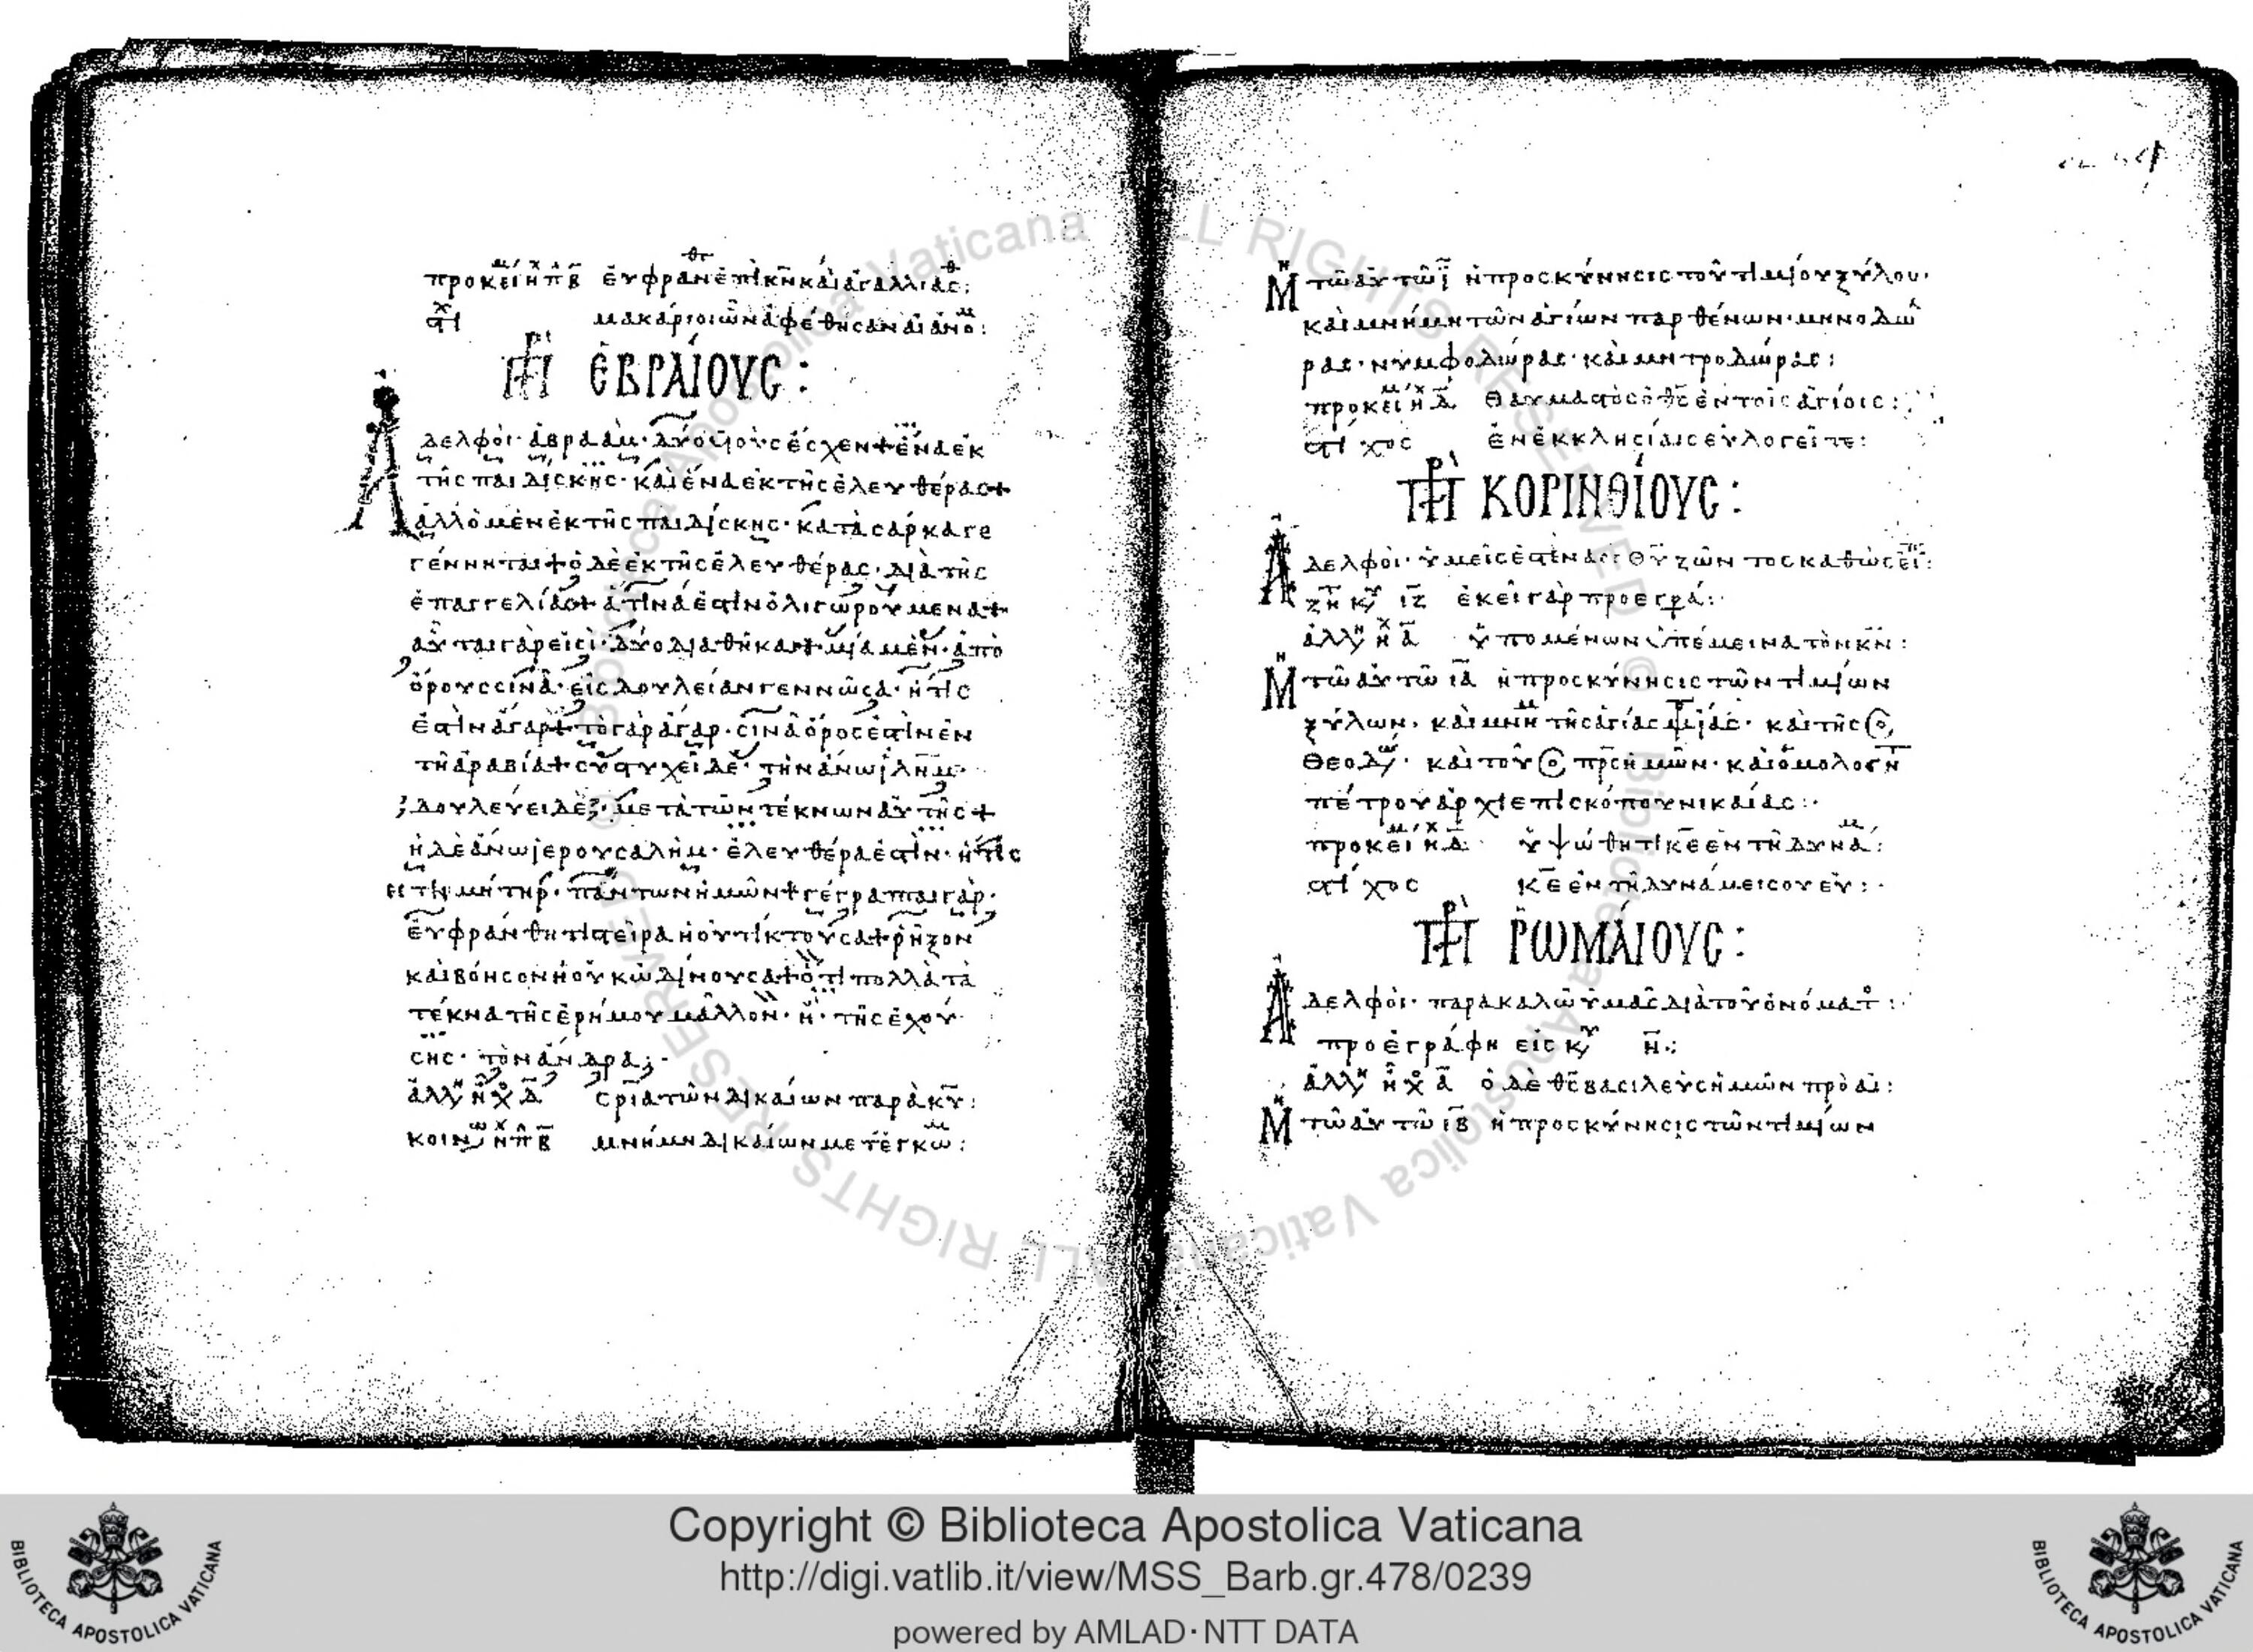 προκεί ἦχ πλ β εὐφράνθητε ἐπὶ κν καὶ ἀγαλλιᾶσθ:
στίχ μακάριοι ὧν ἀφέθησαν αἱ ἀνομ:
πρ ἙΒΡΑΊΟΥΣ:
Ἀδελφοὶ· ἀβραὰμ· δύο υἱοὺς ἔσχεν+ ἕνα ἐκ
τῆς παιδίσκης· καὶ ἕνα ἐκ τῆς ἐλευθέρας+
ἀλλ ὁ μὲν ἐκ τῆς παιδίσκης· κατὰ σάρκα γε
γέννηται+ ὁ δὲ ἐκ τῆς ἐλευθέρας· διὰ τῆς
ἐπαγγελίας+ ἅτινά ἐστιν ὀλιγωρούμενα+
αὗται γὰρ εἰσὶ· δύο διαθῆκαι+ μία μὲν· ἀπὸ
ὄρους σινᾶ· εἰς δουλείαν γεννῶσα· ἥτις
ἐστὶν ἄγαρ+ τὸ γὰρ ἄγαρ· σινᾶ ὄρος ἐστὶν ἐν
τῆ ἀραβία+ συστυχεῖ δὲ· τὴν ἄνω ιλημ·
δουλεύει δὲ· μετὰ τῶν τέκνων αὐτῆς+
ἡ δὲ ἄνω ιερουσαλὴμ· ἐλευθέρα ἐστὶν· ἥτις
ἐστὶ μήτηρ· πάντων ἡμῶν+ γέγραπται γὰρ·
εὐφράνθητι στεῖρα ἡ οὐ τίκτουσα+ ῥῆξον
καὶ βόησον ἡ οὐκ ὠδίνουσα+ ὅτι πολλὰ τὰ
τέκνα τῆς ἐρήμου μᾶλλον· ἢ· τῆς ἐχού
σης· τὸν ἄνδρα:·
ἀλλη ἦχ α σρία τῶν δικαίων παρὰ κυ:
κοινω ἦχ πλ β μνήμη δικαίων μετ ἐγκω:
Μην τῶ αὐτῶ ι ἡ προσκύνησις τοῦ τιμίου ξύλου·
καὶ μνήμη τῶν ἁγίων παρθένων· μηνοδώ
ρας· νυμφοδώρας· καὶ μητροδώρας:
προκεί ἦχ δ θαυμαστὸς ὁ θς ἐν τοῖς ἁγίοις:
στίχος ἐν ἐκκλησίαις εὐλογεῖτε:
πρ ΚΟΡΙΝΘΊΟΥΣ:
Ἀδελφοὶ· ὑμεῖς ἐστὲ ναὸς θυ ζῶντος καθὼς εἶπ:
ζη κυ ιζ ἐκεῖ γὰρ προεγρά:·
ἀλλη ἦχ α ὑπομένων ὑπέμεινα τὸν κν:
Μην τῶ αὐτῶ ια ἡ προσκύνησις τῶν τιμίων
ξύλων· καὶ μνημ τῆς ἁγίας ιας· καὶ τῆς ὁσ
θεοδω· καὶ τοῦ ὁσ πρς ἡμῶν· καὶ ὁμολογητ
πέτρου ἀρχιεπισκόπου νικαίας:·
προκεί ἦχ δ ὑψώθητι κε ἐν τῆ δυνάμ:
στίχος κε ἐν τῆ δυνάμει σου εὐ:·
πρ ῬΩΜΑΊΟΥΣ:
Ἀδελφοὶ· παρακαλῶ ὑμᾶς διὰ τοῦ ὀνόματ:
προεγράφη εἰς κυ η:
ἀλλη ἦχ α ὁ δὲ θς βασιλεὺς ἡμῶν πρὸ αἰ:
Μην τῶ αὐτῶ ιβ ἡ προσκύνησις τῶν τιμίων
Copyright © Biblioteca Apostolica Vaticana
http://digi.vatlib.it/view/MSS_Barb.gr.478/0239
powered by AMLAD·NTT DATA
BIBLIOTECA APOSTOLICA VATICANA
BIBLIOTECA APOSTOLICA VATICANA